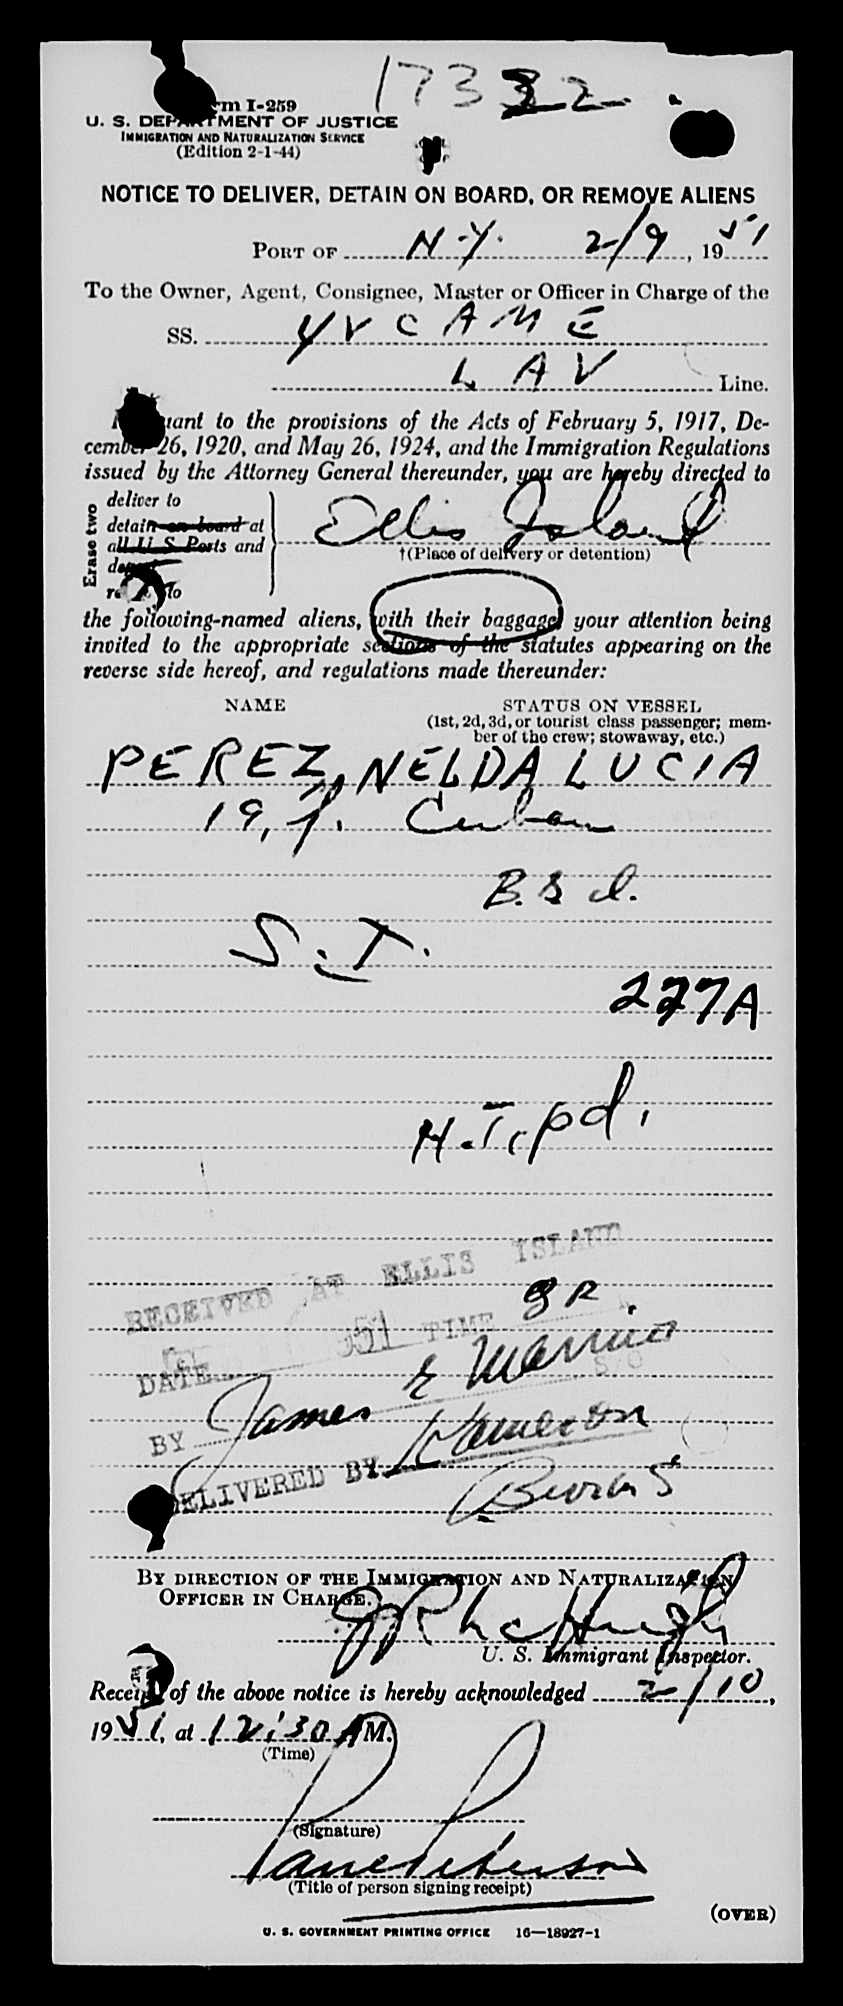 17332
Form I-259
U. S. DEPARTMENT OF JUSTICE
IMMIGRATION AND NATURALIZATION SERVICE
(Edition 2-1-44)
NOTICE TO DELIVER, DETAIN ON BOARD, OR REMOVE ALIENS
PORT OF N.Y. 2/9, 1951
To the Owner, Agent, Consignee, Master or Officer in Charge of the
SS. YVCAME
LAV Line.
Pursuant to the provisions of the Acts of February 5, 1917, De-
cember 26, 1920, and May 26, 1924, and the Immigration Regulations
issued by the Attorney General thereunder, you are hereby directed to
Erase two
deliver to
detain on board at
all U S Ports and
Ellis Island
†(Place of delivery or detention)
to
the following-named aliens, with their baggage, your attention being
invited to the appropriate sections of the statutes appearing on the
reverse side hereof, and regulations made thereunder:
NAME STATUS ON VESSEL
(1st, 2d, 3d, or tourist class passenger; mem-
ber of the crew; stowaway, etc.)
PEREZ, NELDA LUCIA
19, f. Cuban
B. S d.
S. T.
227A
H.T. pd.
RECEIVED AT ELLIS ISLAND
DATE 1951 TIME
BY James E
DELIVERED BY
BY DIRECTION OF THE IMMIGRATION AND NATURALIZATION
OFFICER IN CHARGE.
McHugh
U. S. Immigrant Inspector.
Receipt of the above notice is hereby acknowledged 2/10,
1951, at 12:30 AM.
(Time)
(Signature)
(Title of person signing receipt)
(OVER)
U. S. GOVERNMENT PRINTING OFFICE 16—18927-1